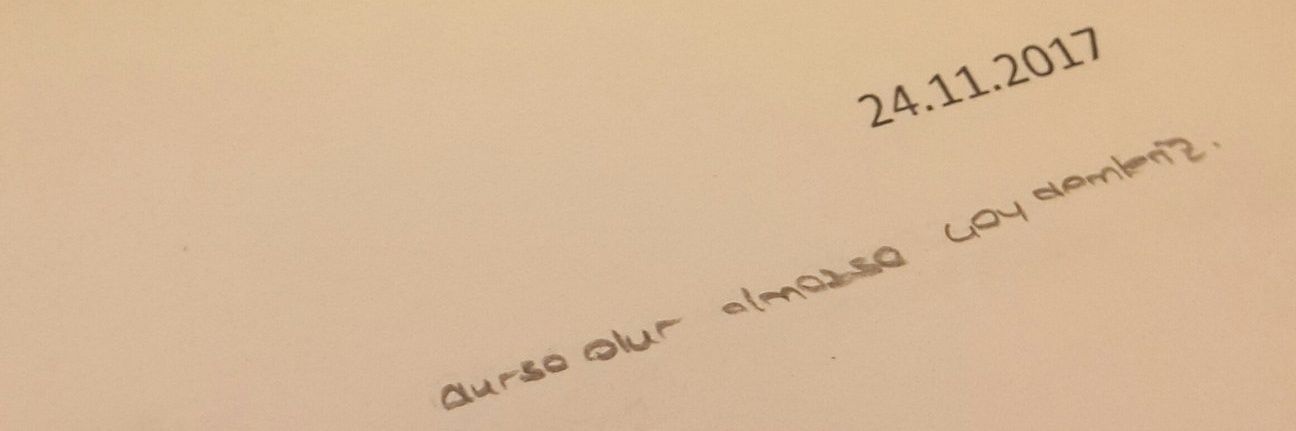 24.11.2017
olursa olur olmazsa çay demleriz.